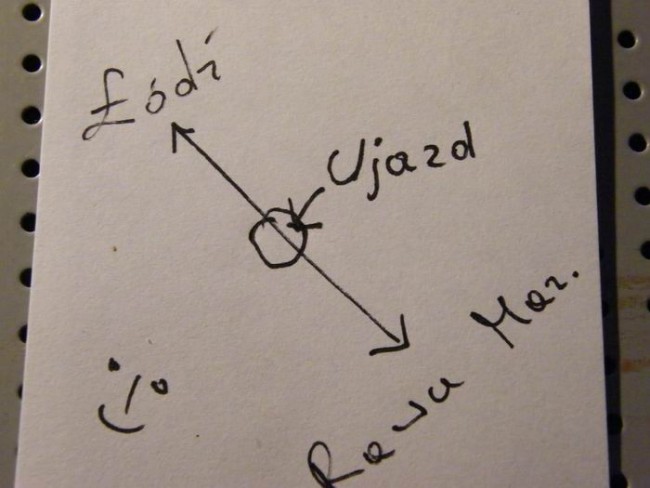 Łódź
Ujazd
Rawa Maz.